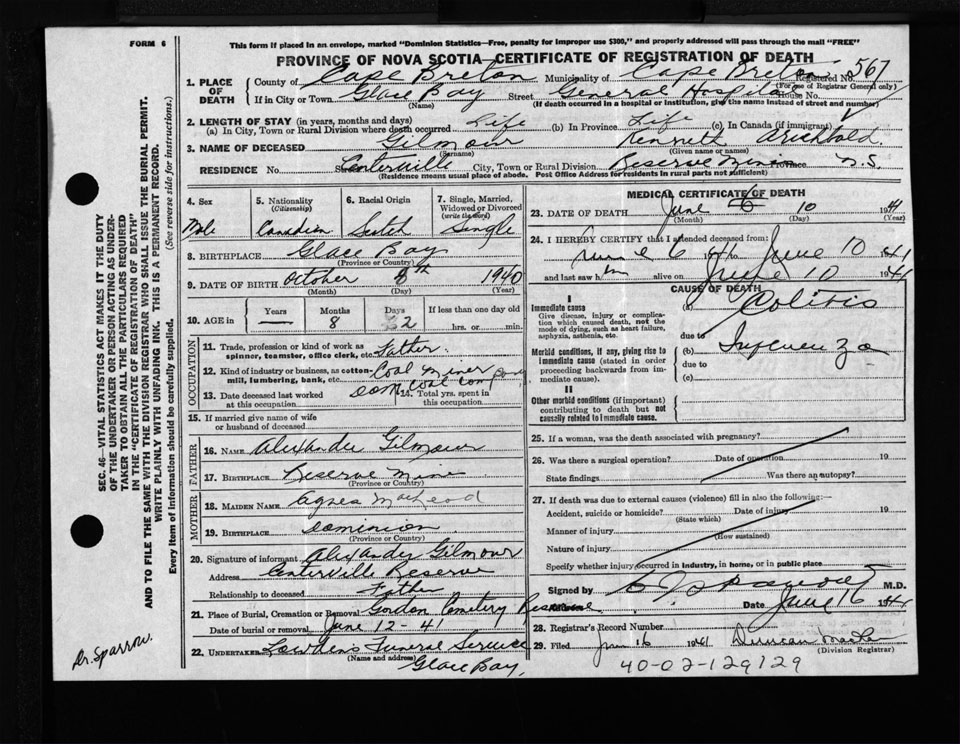 FORM 6
This form if placed in an envelope, marked "Dominion Statistics—Free, penalty for improper use $300," and properly addressed will pass through the mail "FREE"
PROVINCE OF NOVA SCOTIA—CERTIFICATE OF REGISTRATION OF DEATH
1. PLACE OF DEATH County of Cape Breton Municipality of Cape Breton Registered No. 567
(For use of Registrar General only)
If in City or Town Glace Bay Street General Hospital House No.
(Name) (If death occurred in a hospital or institution, give the name instead of street and number)
2. LENGTH OF STAY (in years, months and days)
(a) In City, Town or Rural Division where death occurred Life (b) In Province Life (c) In Canada (if immigrant)
3. NAME OF DECEASED Gilmour Kenneth Archibald
(Surname) (Given name or names)
RESIDENCE No. Centerville City, Town or Rural Division Reserve Mines Province N.S.
(Residence means usual place of abode. Post Office Address for residents in rural parts not sufficient)
4. Sex 5. Nationality (Citizenship) 6. Racial Origin 7. Single, Married, Widowed or Divorced (write the word)
Male Canadian Scotch Single
8. BIRTHPLACE Glace Bay
(Province or Country)
9. DATE OF BIRTH October 8th 1940
(Month) (Day) (Year)
10. AGE in Years Months Days If less than one day old
— 8 2 hrs. or min.
OCCUPATION
11. Trade, profession or kind of work as spinner, teamster, office clerk, etc. Father
12. Kind of industry or business, as cotton-mill, lumbering, bank, etc. Coal Miner
Dom Coal Company
13. Date deceased last worked at this occupation 14. Total yrs. spent in this occupation
15. If married give name of wife or husband of deceased
FATHER
16. NAME Alexander Gilmour
17. BIRTHPLACE Reserve Mines
(Province or Country)
MOTHER
18. MAIDEN NAME Agnes MacLeod
19. BIRTHPLACE Dominion
(Province or Country)
20. Signature of informant Alexander Gilmour
Address Centerville Reserve
Relationship to deceased Father
21. Place of Burial, Cremation or Removal Gordon Cemetery Reserve
Date of burial or removal June 12-41
22. UNDERTAKER Lowden's Funeral Service
(Name and address)
Glace Bay
MEDICAL CERTIFICATE OF DEATH
23. DATE OF DEATH June 10 1941
(Month) (Day) (Year)
24. I HEREBY CERTIFY that I attended deceased from:
June 6 1941 to June 10 1941
and last saw him alive on June 10 1941
CAUSE OF DEATH
I
Immediate cause
Give disease, injury or complication which caused death, not the mode of dying, such as heart failure, asphyxia, asthenia, etc.
(a) Colitis
due to
Morbid conditions, if any, giving rise to immediate cause (stated in order proceeding backwards from immediate cause).
(b) Influenza
due to
(c)
II
Other morbid conditions (if important) contributing to death but not causally related to immediate cause.
25. If a woman, was the death associated with pregnancy?
26. Was there a surgical operation? Date of operation 19
State findings Was there an autopsy?
27. If death was due to external causes (violence) fill in also the following:—
Accident, suicide or homicide? Date of injury 19
(State which)
Manner of injury
(How sustained)
Nature of injury
Specify whether injury occurred in industry, in home, or in public place
Signed by M.D.
Address Date June 16 1941
28. Registrar's Record Number
29. Filed June 16 1941 Duncan
(Division Registrar)
40-02-129129
SEC. 46—VITAL STATISTICS ACT MAKES IT THE DUTY
OF THE UNDERTAKER OR PERSON ACTING AS UNDER-
TAKER TO OBTAIN ALL THE PARTICULARS REQUIRED
IN THE "CERTIFICATE OF REGISTRATION OF DEATH"
AND TO FILE THE SAME WITH THE DIVISION REGISTRAR WHO SHALL ISSUE THE BURIAL PERMIT.
WRITE PLAINLY WITH UNFADING INK. THIS IS A PERMANENT RECORD.
Every item of information should be carefully supplied. (See reverse side for instructions.)
Dr. Sparrow.